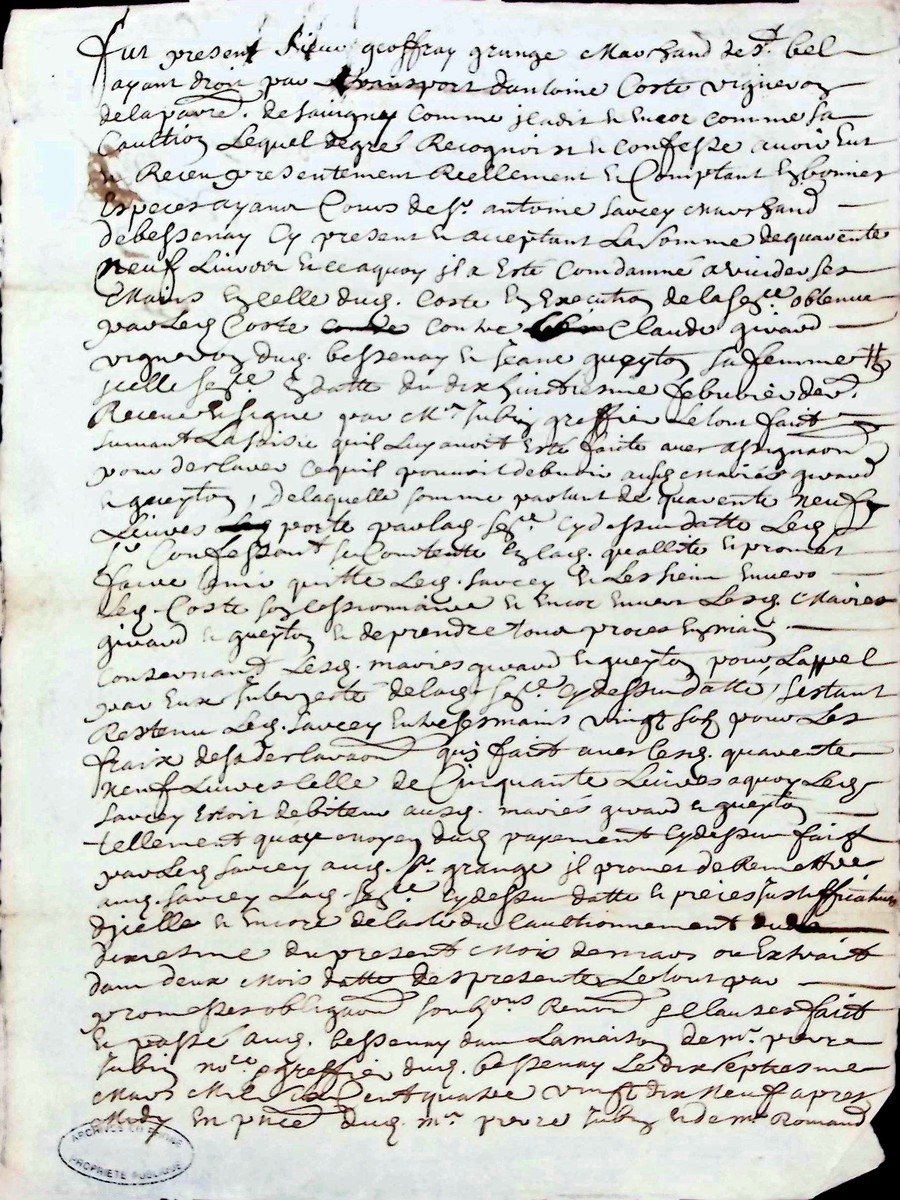 fut present Sieur geoffray grange Marchand de St. bel
ayant droit par transport d'antoine Coste vigneron
de la paroe. de savigney Comme jl a dit & encor comme sa
Caultion Lequel de gré Recognoist & Confesse avoir Eut
& Receu presentement Reellement & Comptant En bonnes
Especes ayant Cours de Sr. antoine Savcey Marchand
de bessenay Cy present & acceptant La Somme de quarente
neuf Livres & ce a quoy jl a Esté Comdamné a vuider ses
Mains En celle dud. Coste En Execution de la Sence obtenue
par Led Coste contre Claude girard
vigneron dud. bessenay & Jeane gueyton sa femme
jcelle Sence En datte du dix huictiesme febvrier der.
Receue & signé par Me. Jubin greffier Le tout faict
suivant La saisie qu'il Luy avoit Esté faite avec assignaon
pour declarer ce qu'il pouvoit debvoir ausd mariés girard
& gueyton, de laquelle somme partant de quarente neuf
Livres porté par lad. Sence. Cy dessus datté Led
Sr. Confessant se Contente En lad. quallité & promet
faire tenir quitte Led. Savcey & Les siens Envers
Led. Coste son cessionnaire & Encor Envers Lesd. Mariés
girard & gueyton & de prendre tous proces En main
Consernant Lesd. mariés girard & gueyton pour L'appel
par Eux Interjecté de lad. Sence. Cy dessus datté, s'estant
Restenu Led. Savcey Entre ses mains vingt solz pour Les
fraix de sa declaraon qui faict avec lesd. quarente
neuf Livres celle de Cinquante Livres a quoy Led
Savcey Estoit debiteur ausd. mariés girard & gueyton
tellement qu'au moyen dud payement Cy dessus faict
par Led Savcey aud. Sr. grange jl promet de Remettre
aud. Savcey Lad. Sence Cy dessus datté & pieces Justifficatives
d'jcelle & Encore de l'acte du Caultionnement
dixiesme du present Mois de mars ou Extraict
dans deux Mois datte des presente Le tout par
promesses obligaon soubzons Renon & Clauses faict
& passé aud. bessenay dans La maison de Me. pierre
Jubin nore. & greffier dud. bessenay Le dix septiesme
Mars Mil six Cent quatre vingt dix Neuf apres
Midy En pnce dud. Me. pierre Jubin & de Me Romand
ARCHIVES DU RHONE
PROPRIETE PUBLIQUE